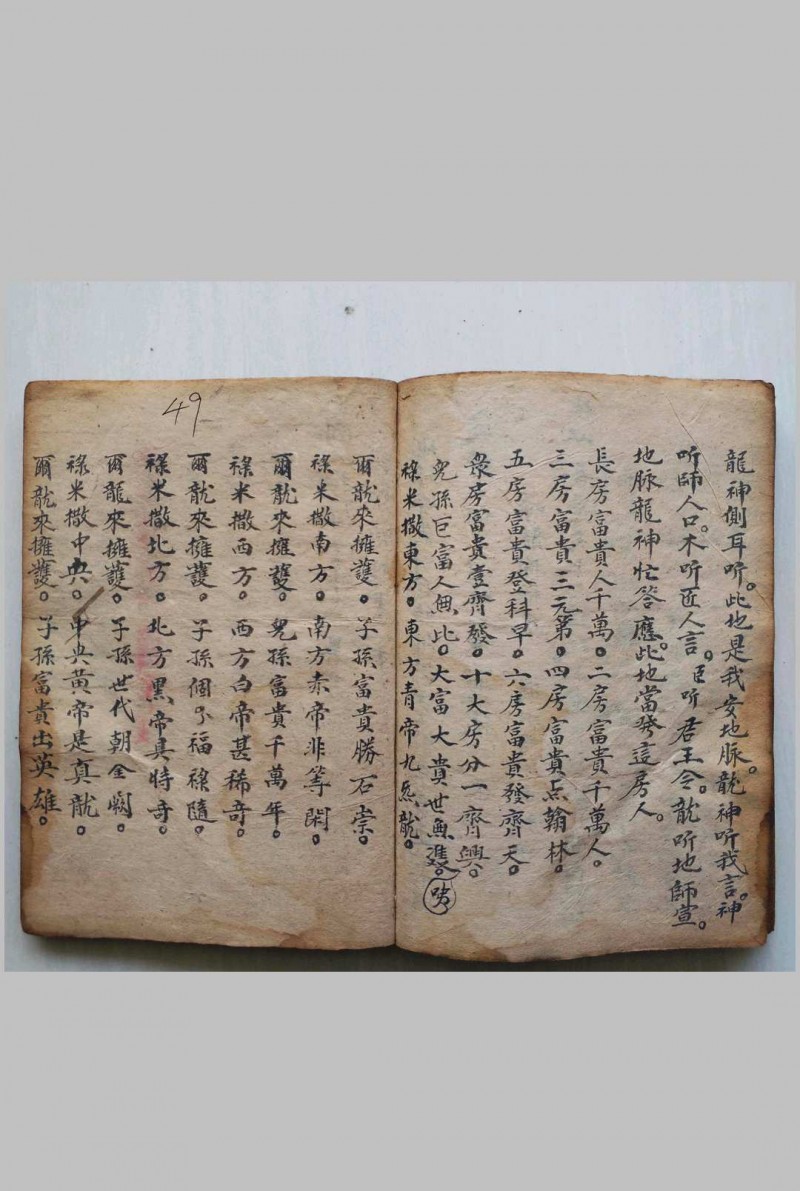 龍神側耳听。此地是我安地脉。龍神听我言。神
听師人口。木听匠人言。臣听君王令。龍听地師宣。
地脉龍神忙答應。此地當發這房人。
長房富貴人千萬。二房富貴千萬人。
三房富貴三元第。四房富貴点翰林。
五房富貴登科早。六房富貴發齊天。
衆房富貴壹齊發。十大房分一齊興。
兒孫巨富人無比。大富大貴世無
祿米撒東方。東方青帝九炁龍。
49
爾龍來擁護。子孫富貴勝石崇。
祿米撒南方。南方赤帝非等閑。
爾龍來擁護。兒孫富貴千萬年。
祿米撒西方。西方白帝甚稀奇。
爾龍來擁護。子孫個个福祿隨。
祿米撒北方。北方黑帝真特奇。
爾龍來擁護。子孫世代朝金闕。
祿米撒中央。中央黃帝是真龍。
爾龍來擁護。子孫富貴出英雄。